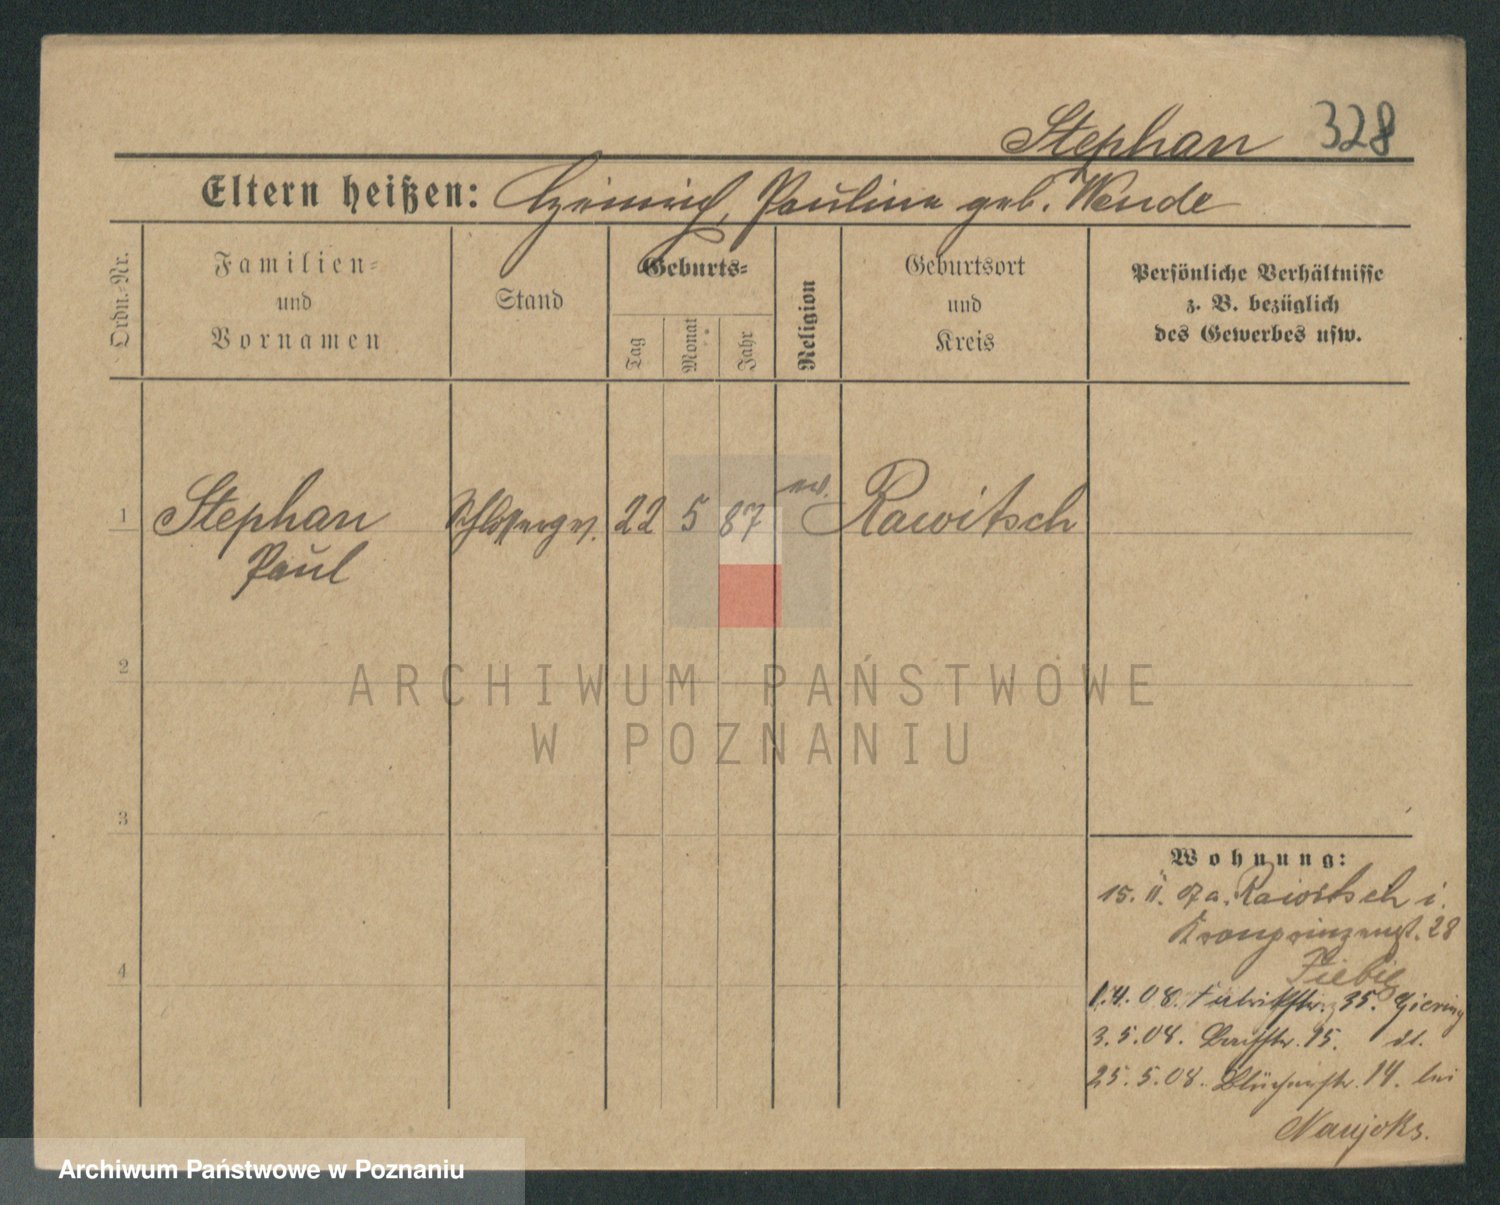 Stephan 328
Eltern heißen: Heinrich, Pauline geb. Wende
Ordn.-Nr.
Familien-
und
Vornamen
Stand
Geburts-
Tag
Monat
Jahr
Religion
Geburtsort
und
Kreis
Persönliche Verhältnisse
z. B. bezüglich
des Gewerbes usw.
1 Stephan Schlosserges. 22 5 87 ev. Rawitsch
Paul
2
3
4
ARCHIWUM PAŃSTWOWE
W POZNANIU
Wohnung:
15. 11. 07 a. Rawitsch i.
Kronprinzenst. 28
Fiebig
1.4.08. 35.
3.5.08. 15.
25.5.08. Blücherstr. 14. bei
Naujoks.
Archiwum Państwowe w Poznaniu